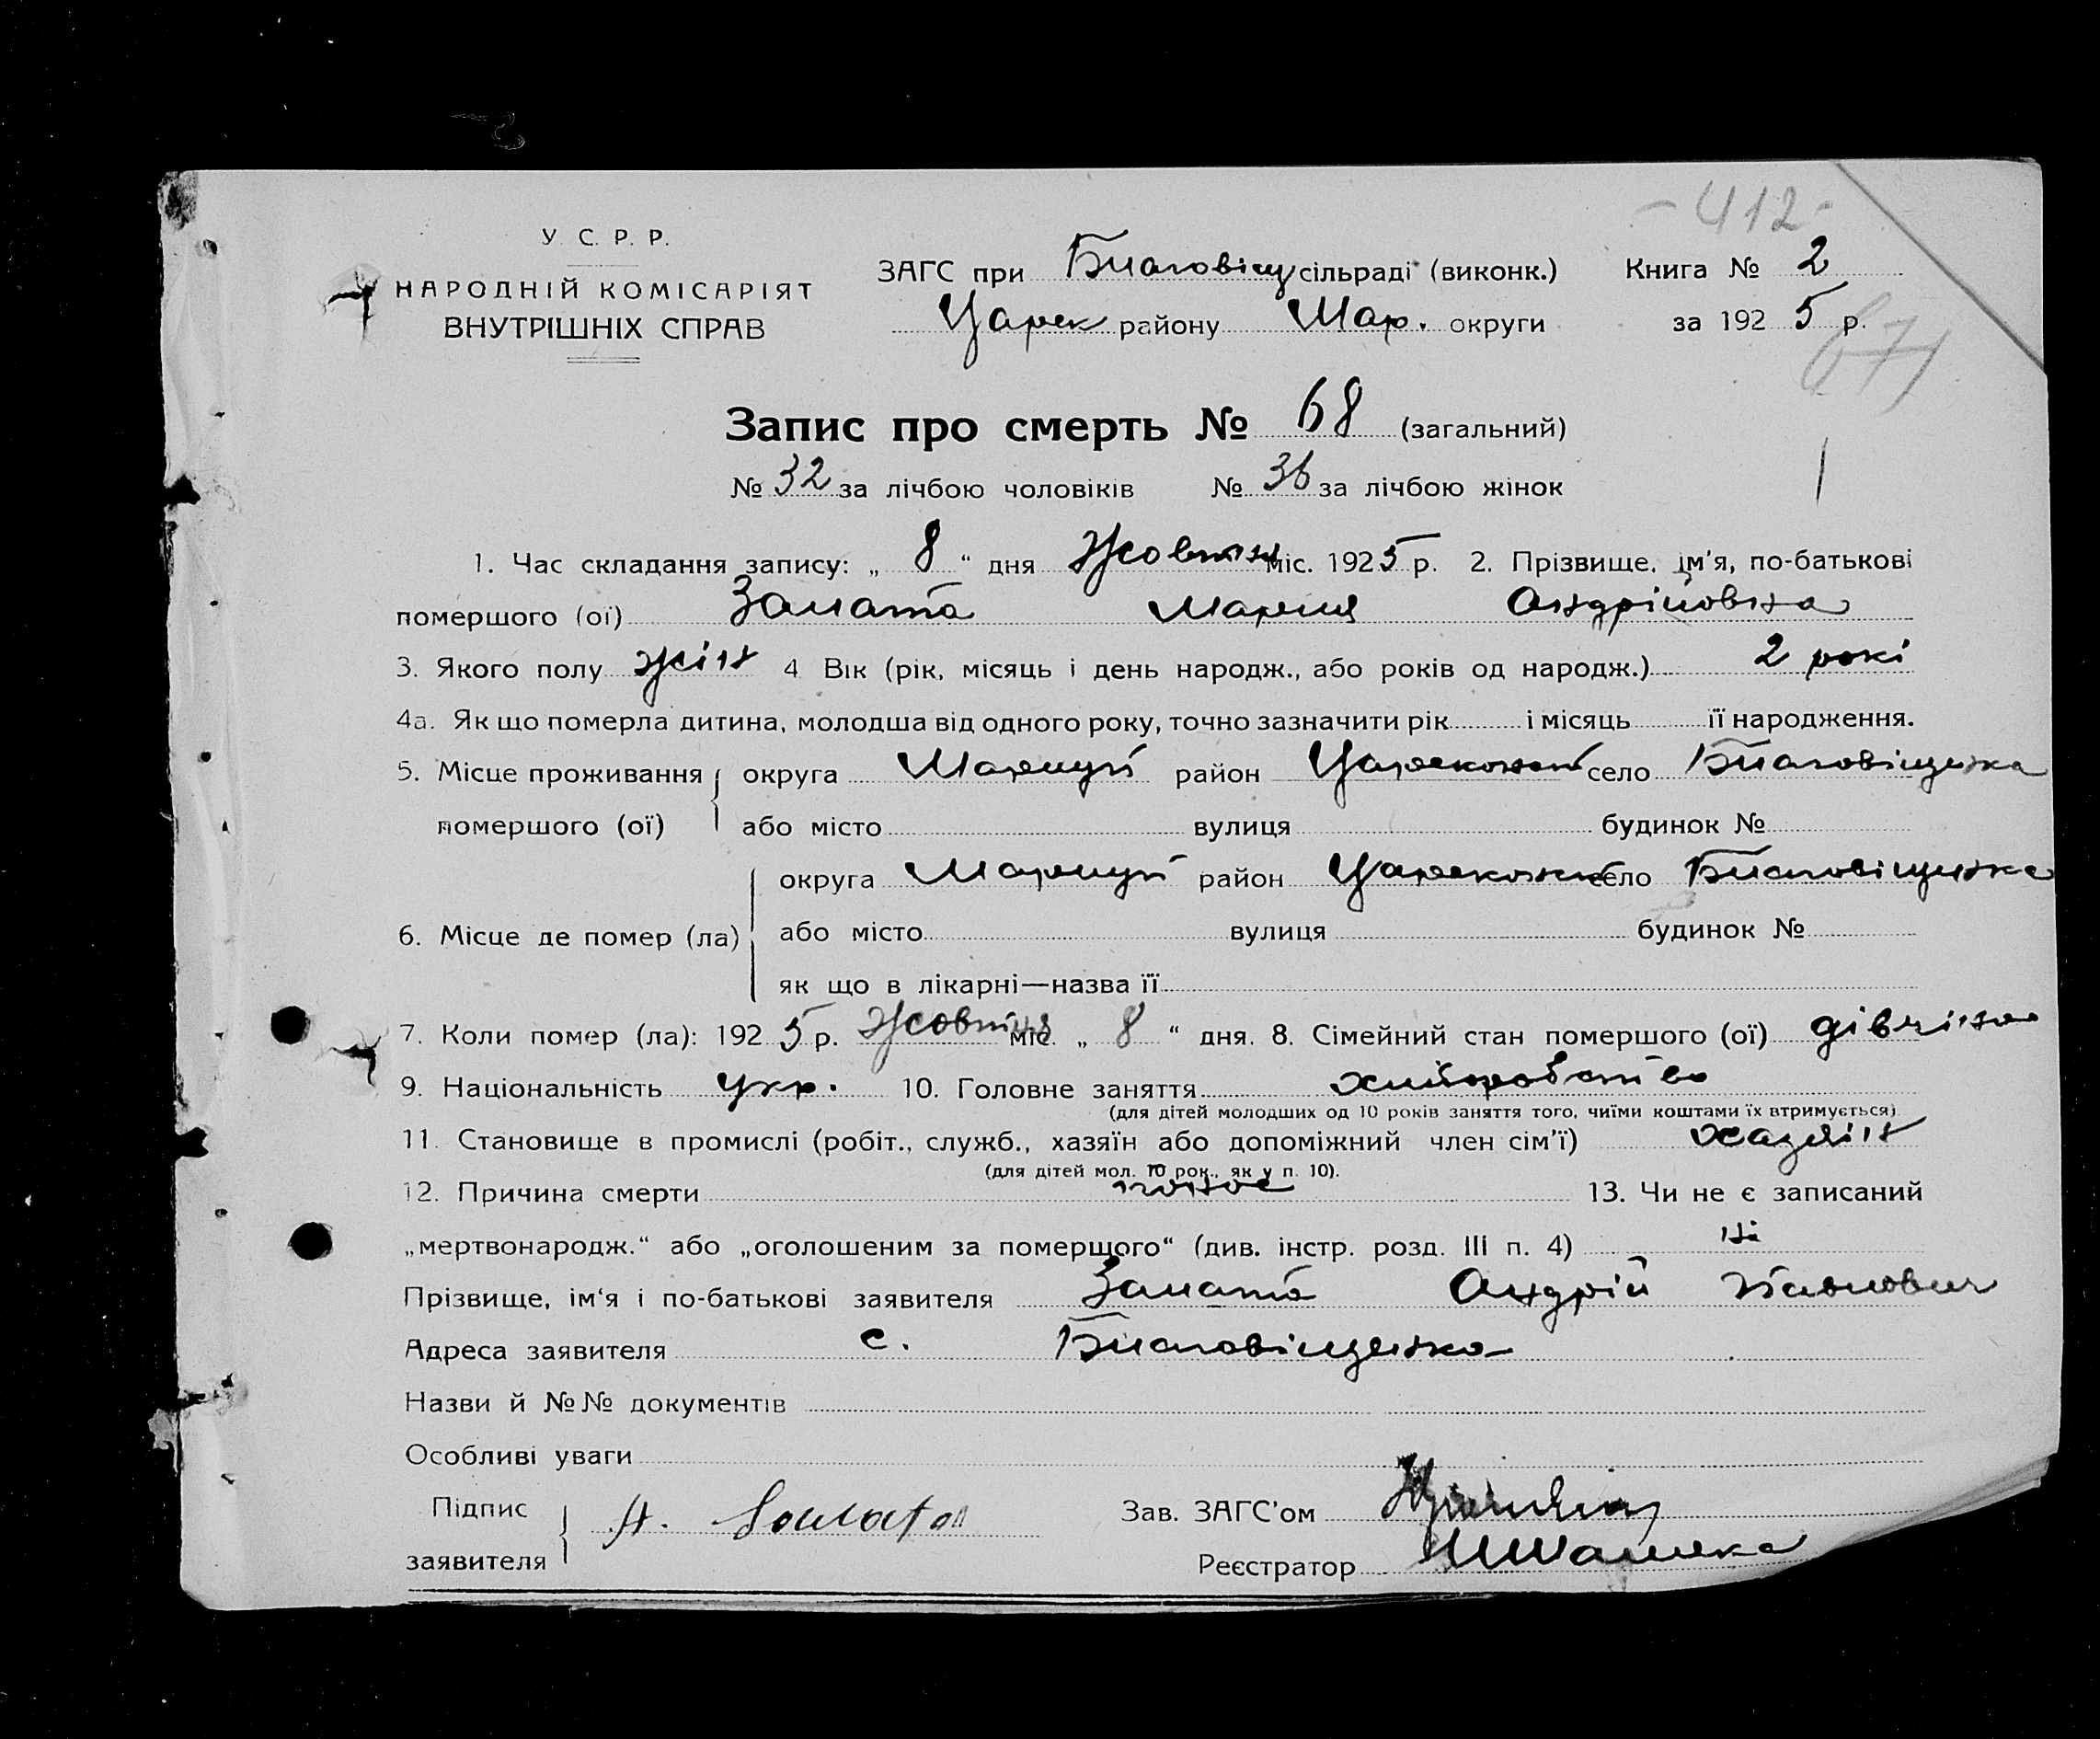 -412-
У. С. Р. Р.
НАРОДНІЙ КОМІСАРІЯТ
ВНУТРІШНІХ СПРАВ
ЗАГС при Благовіщ сільраді (виконк.) Книга № 2
Царек району Мар. округи за 1925 р.
671
Запис про смерть № 68 (загальний)
№ 32 за лічбою чоловіків № 36 за лічбою жінок
1. Час складання запису: „ 8 “ дня Жовтня міс. 1925 р. 2. Прізвище, ім'я, по-батькові
помершого (ої) Замата Мария Андріловна
3. Якого полу жін 4 Вік (рік, місяць і день народж., або років од народж.) 2 рокі
4а. Як що померла дитина, молодша від одного року, точно зазначити рік і місяць її народження.
5. Місце проживання округа Мариуп район Царекон село Благовіщенка
помершого (ої) або місто вулиця будинок №
округа Мариуп район Царекон село Благовіщенка
6. Місце де помер (ла) або місто вулиця будинок №
як що в лікарні—назва її
7. Коли помер (ла): 1925 р. Жовтня міс. „ 8 “ дня. 8. Сімейний стан помершого (ої) дівчіна
9. Національність укр. 10. Головне заняття хліборобство
(для дітей молодших од 10 років заняття того, чиїми коштами їх втримується)
11. Становище в промислі (робіт., служб., хазяїн або допоміжний член сім'ї) хазяін
(для дітей мол. 10 рок., як у п. 10).
12. Причина смерти понос 13. Чи не є записаний
„мертвонародж.“ або „оголошеним за померщого“ (див. інстр. розд. III п. 4) ні
Прізвище, ім'я і по-батькові заявителя Замата Андрій Павлович
Адреса заявителя с. Благовіщенка
Назви й №№ документів
Особливі уваги
Підпис заявителя А. Зам
Зав. ЗАГС'ом
Реєстратор